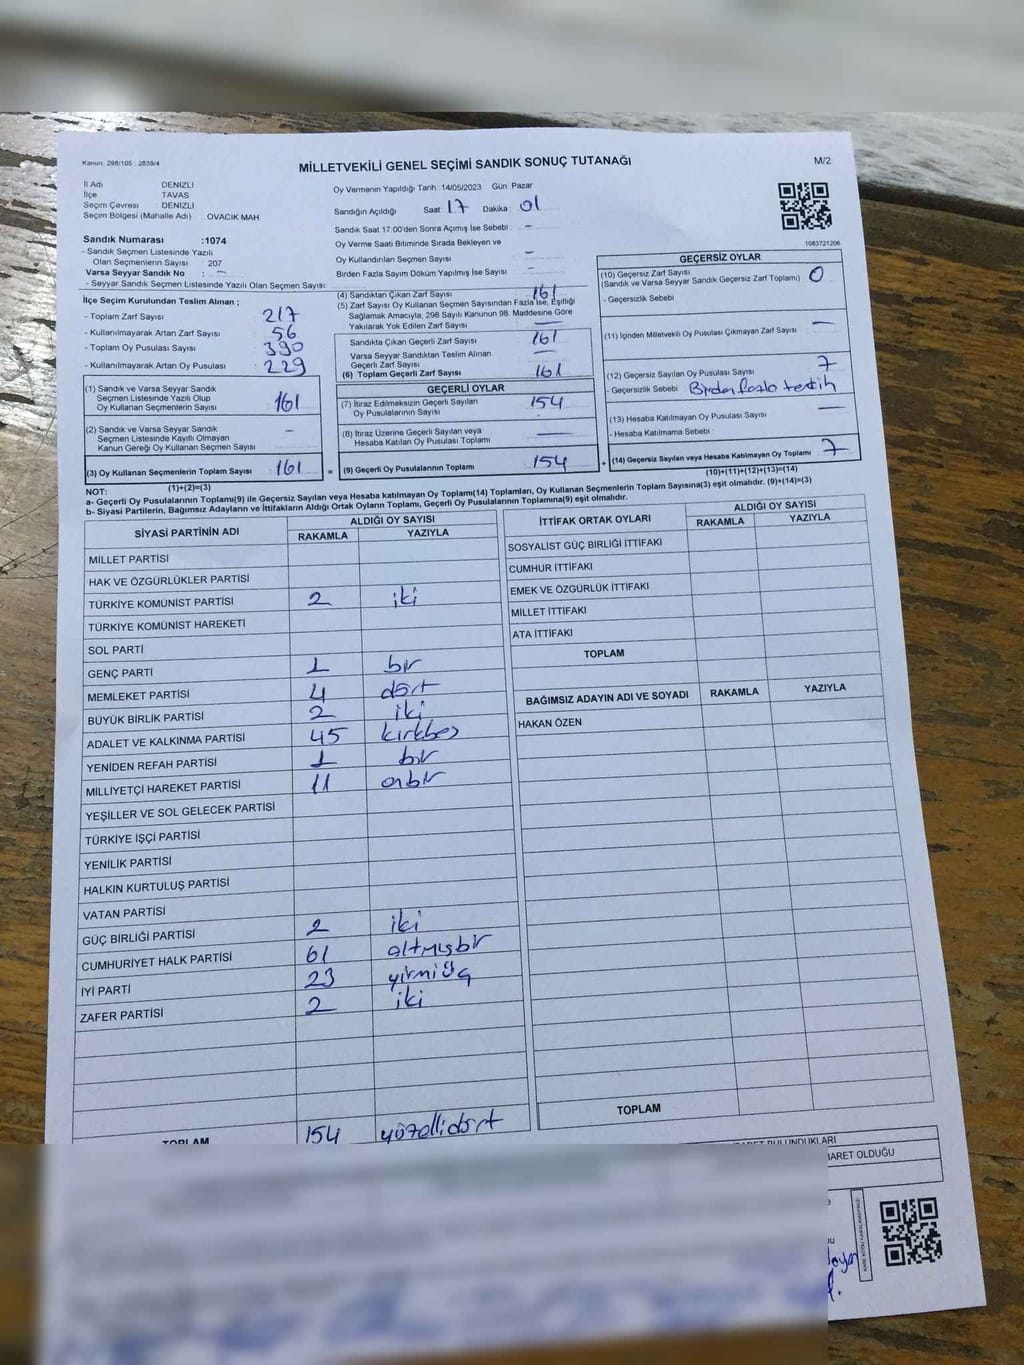 Kanun: 298/105 : 2839/4
MİLLETVEKİLİ GENEL SEÇİMİ SANDIK SONUÇ TUTANAĞI
M/2
İl Adı DENİZLİ
İlçe TAVAS
Seçim Çevresi DENİZLİ
Seçim Bölgesi (Mahalle Adı) : OVACIK MAH.
Oy Vermenin Yapıldığı Tarih: 14/05/2023 Gün: Pazar
Sandığın Açıldığı Saat: 17 Dakika: 01
Sandık Saat 17.00'den Sonra Açımış İse Sebebi : -
Oy Verme Saati Bitiminde Sırada Bekleyen ve
Oy Kullandırılan Seçmen Sayısı -
Birden Fazla Sayım Döküm Yapılmış İse Sayısı -
1083721206
Sandık Numarası :1074
- Sandık Seçmen Listesinde Yazılı
Olan Seçmenlerin Sayısı 207
Varsa Seyyar Sandık No : -
- Seyyar Sandık Seçmen Listesinde Yazılı Olan Seçmen Sayısı:
İlçe Seçim Kurulundan Teslim Alınan ;
- Toplam Zarf Sayısı 217
- Kullanılmayarak Artan Zarf Sayısı 56
- Toplam Oy Pusulası Sayısı 390
- Kullanılmayarak Artan Oy Pusulası 229
(1) Sandık ve Varsa Seyyar Sandık
Seçmen Listesinde Yazılı Olup
Oy Kullanan Seçmenlerin Sayısı 161
(2) Sandık ve Varsa Seyyar Sandık
Seçmen Listesinde Kayıtlı Olmayan
Kanun Gereği Oy Kullanan Seçmen Sayısı -
(3) Oy Kullanan Seçmenlerin Toplam Sayısı 161 =
(1)+(2)=(3)
(4) Sandıktan Çıkan Zarf Sayısı 161
(5) Zarf Sayısı Oy Kullanan Seçmen Sayısından Fazla İse, Eşitliği
Sağlamak Amacıyla, 298 Sayılı Kanunun 98. Maddesine Göre
Yakılarak Yok Edilen Zarf Sayısı —
Sandıkta Çıkan Geçerli Zarf Sayısı 161
Varsa Seyyar Sandıktan Teslim Alınan
Geçerli Zarf Sayısı —
(6) Toplam Geçerli Zarf Sayısı 161
GEÇERLİ OYLAR
(7) İtiraz Edilmeksizin Geçerli Sayılan
Oy Pusulalarının Sayısı 154
(8) İtiraz Üzerine Geçerli Sayılan veya
Hesaba Katılan Oy Pusulası Toplamı —
(9) Geçerli Oy Pusulalarının Toplamı 154 +
GEÇERSİZ OYLAR
(10) Geçersiz Zarf Sayısı
(Sandık ve Varsa Seyyar Sandık Geçersiz Zarf Toplamı) 0
- Geçersizlik Sebebi
(11) İçinden Milletvekili Oy Pusulası Çıkmayan Zarf Sayısı —
(12) Geçersiz Sayılan Oy Pusulası Sayısı 7
- Geçersizlik Sebebi Birden fazla tercih
(13) Hesaba Katılmayan Oy Pusulası Sayısı —
- Hesaba Katılmama Sebebi
(14) Geçersiz Sayılan veya Hesaba Katılmayan Oy Toplamı 7
(10)+(11)+(12)+(13)=(14)
NOT:
a- Geçerli Oy Pusulalarının Toplamı(9) ile Geçersiz Sayılan veya Hesaba katılmayan Oy Toplamı(14) Toplamları, Oy Kullanan Seçmenlerin Toplam Sayısına(3) eşit olmalıdır. (9)+(14)=(3)
b- Siyasi Partilerin, Bağımsız Adayların ve İttifakların Aldığı Ortak Oyların Toplamı, Geçerli Oy Pusulalarının Toplamına(9) eşit olmalıdır.
SİYASİ PARTİNİN ADI ALDIĞI OY SAYISI
RAKAMLA YAZIYLA
MİLLET PARTİSİ
HAK VE ÖZGÜRLÜKLER PARTİSİ
TÜRKİYE KOMÜNİST PARTİSİ 2 iki
TÜRKİYE KOMÜNİST HAREKETİ
SOL PARTİ
GENÇ PARTİ 1 bir
MEMLEKET PARTİSİ 4 dört
BÜYÜK BİRLİK PARTİSİ 2 iki
ADALET VE KALKINMA PARTİSİ 45 kırkbeş
YENİDEN REFAH PARTİSİ 1 bir
MİLLİYETÇİ HAREKET PARTİSİ 11 onbir
YEŞİLLER VE SOL GELECEK PARTİSİ
TÜRKİYE İŞÇİ PARTİSİ
YENİLİK PARTİSİ
HALKIN KURTULUŞ PARTİSİ
VATAN PARTİSİ
GÜÇ BİRLİĞİ PARTİSİ 2 iki
CUMHURİYET HALK PARTİSİ 61 altmışbir
İYİ PARTİ 23 yirmiüç
ZAFER PARTİSİ 2 iki
TOPLAM 154 yüzellidört
İTTİFAK ORTAK OYLARI ALDIĞI OY SAYISI
RAKAMLA YAZIYLA
SOSYALİST GÜÇ BİRLİĞİ İTTİFAKI
CUMHUR İTTİFAKI
EMEK VE ÖZGÜRLÜK İTTİFAKI
MİLLET İTTİFAKI
ATA İTTİFAKI
TOPLAM
BAĞIMSIZ ADAYIN ADI VE SOYADI RAKAMLA YAZIYLA
HAKAN ÖZEN
TOPLAM
BULUNDUKLARI
BARET OLDUĞU